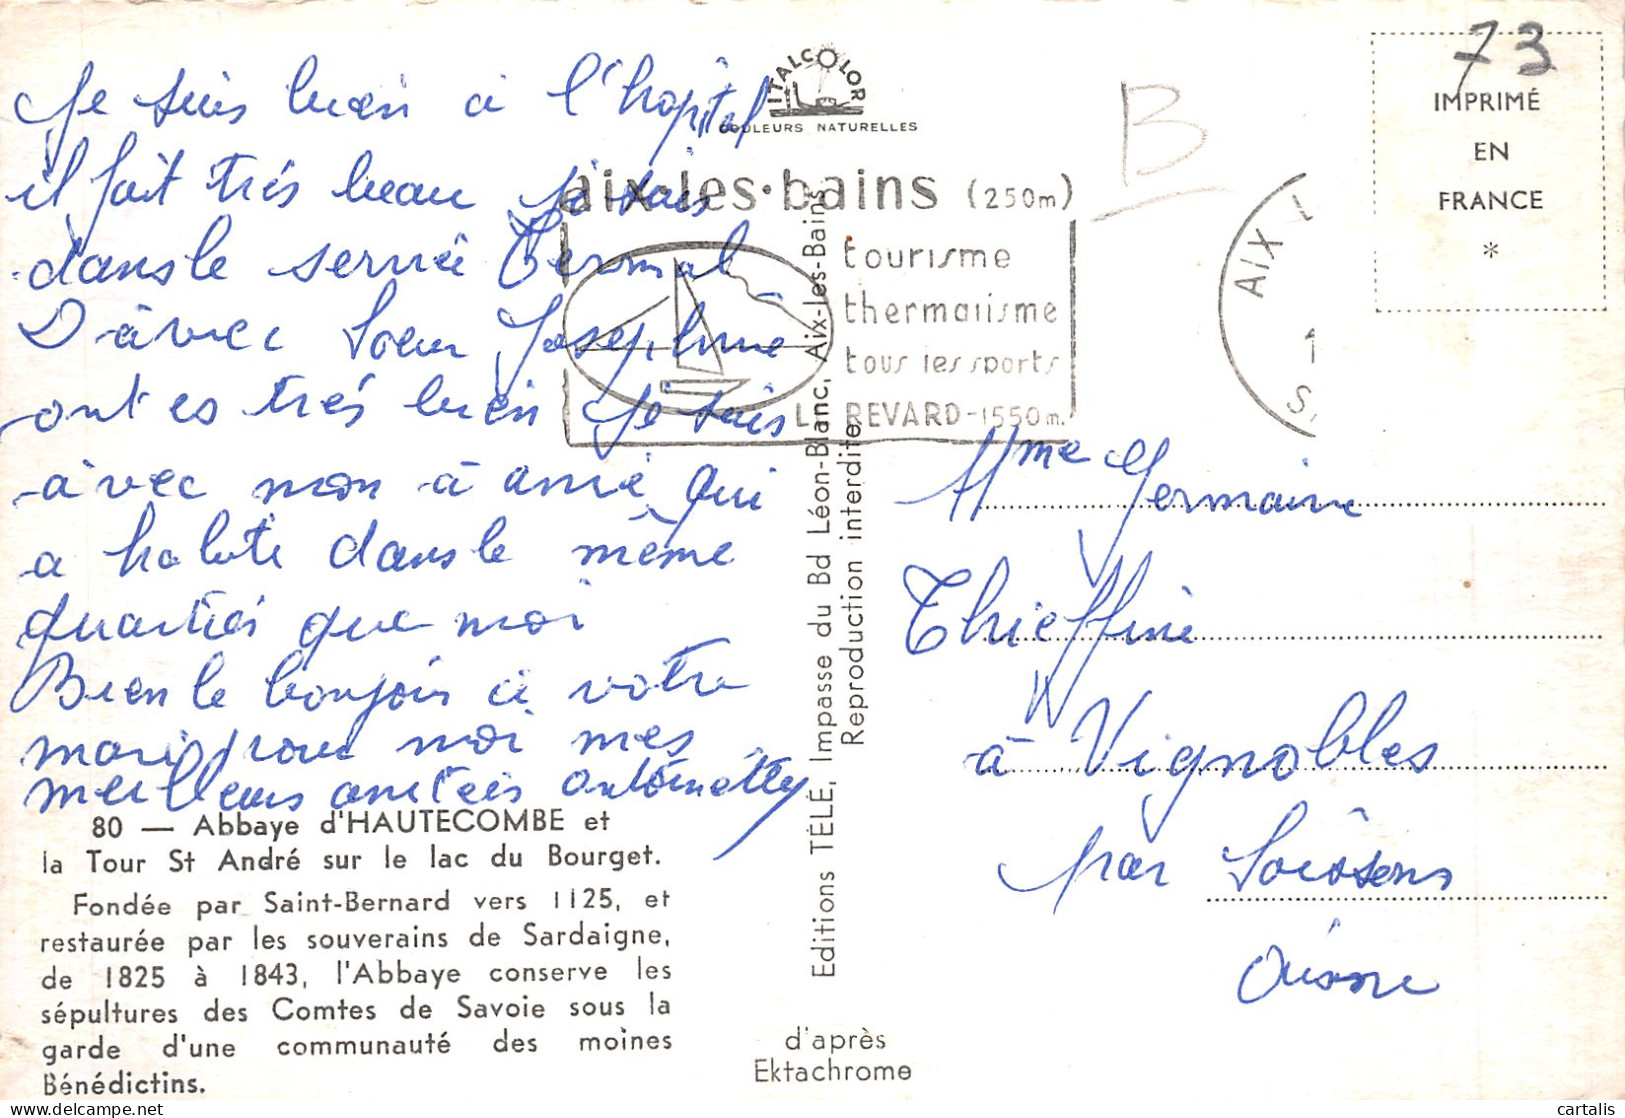 Je suis bien à l'hopital
il fait très beau je suis
dans le servié Termal
D'àvec Soeur Josephine
ont es très bien je suis
àvec mon à amié qui
a habité dans le même
quartiés que moi
Bien le bonjois à votre
mari pour moi mes
meilleurs amitiés Antoinette
80 — Abbaye d'HAUTECOMBE et
la Tour St André sur le lac du Bourget.
Fondée par Saint-Bernard vers 1125, et
restaurée par les souverains de Sardaigne,
de 1825 à 1843, l'Abbaye conserve les
sépultures des Comtes de Savoie sous la
garde d'une communauté des moines
Bénédictins.
ITALCOLOR
COULEURS NATURELLES
aix-les-bains (250m)
tourisme
thermalisme
tous les sports
LE REVARD-1550m.
Editions TÉLÉ, Impasse du Bd Léon-Blanc, Aix-les-Bains
Reproduction interdite
d'après
Ektachrome
B
AIX L
1
S
73
IMPRIMÉ
EN
FRANCE
*
Mme Germaine
Thieffine
à Vignobles
par Soissons
Aisne
cartalis